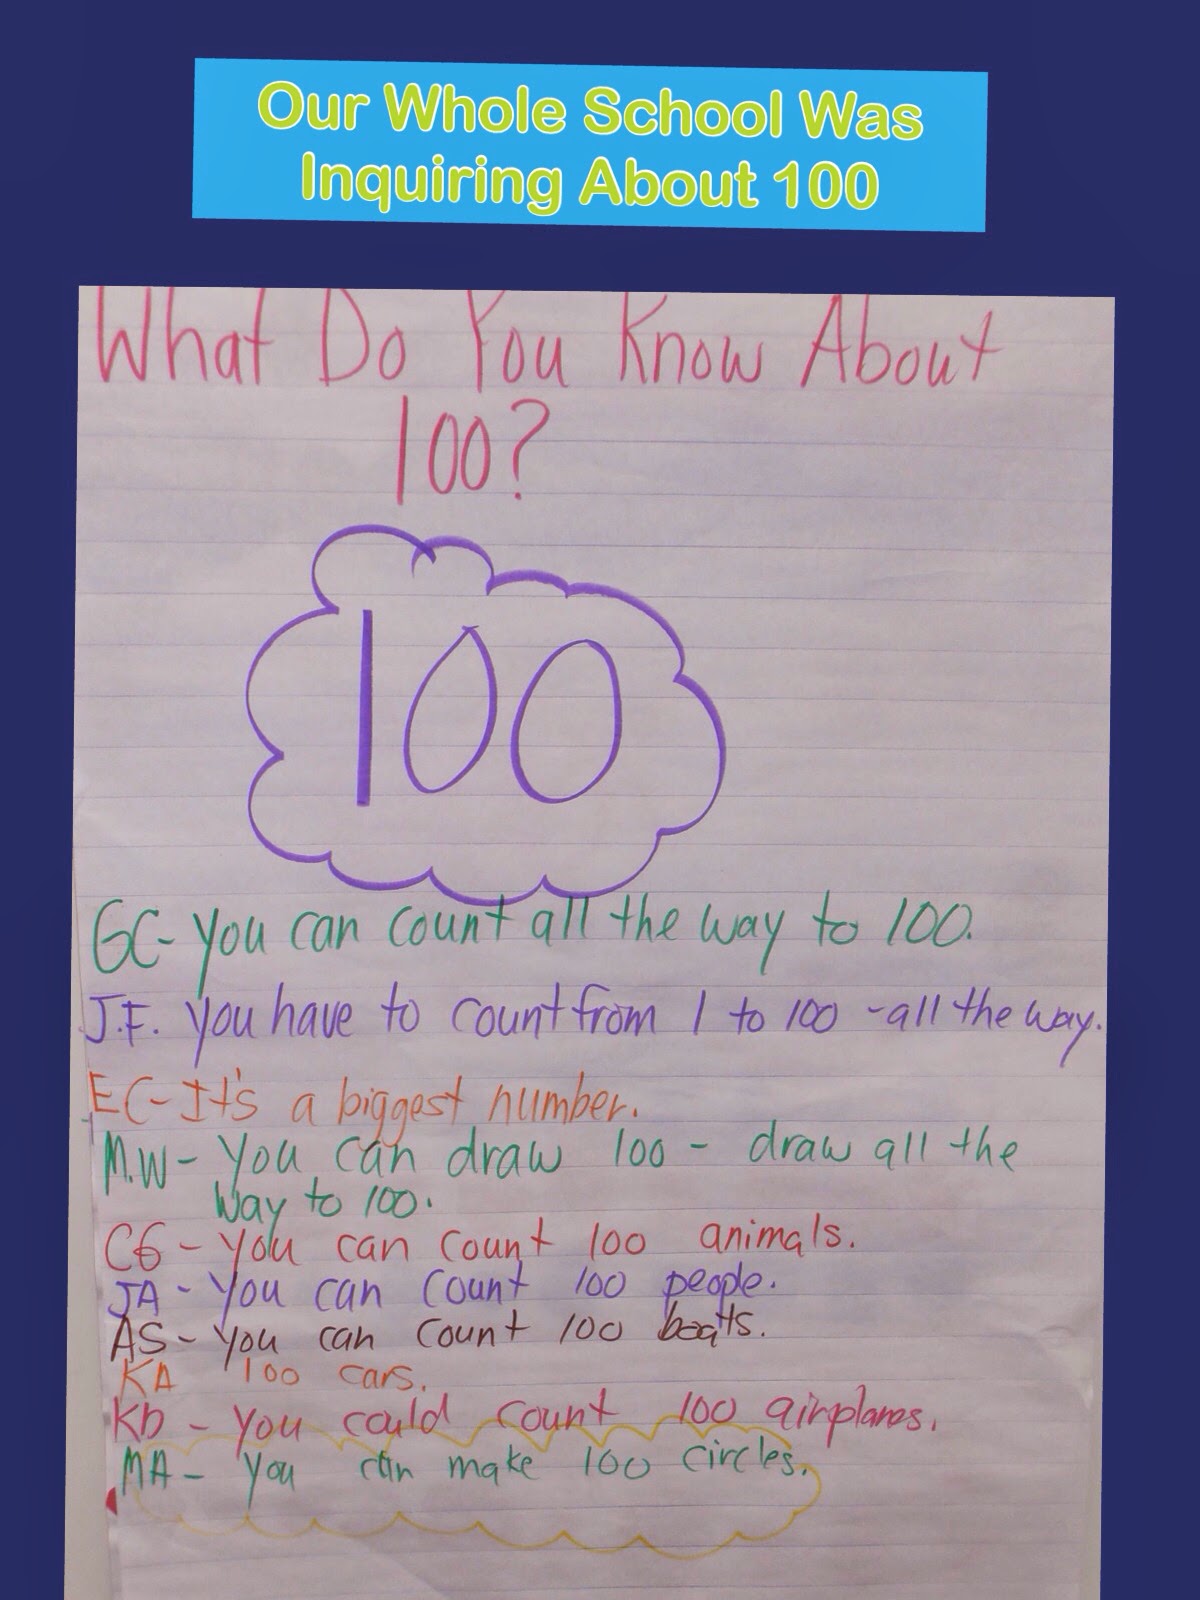 Our Whole School Was
Inquiring About 100
What Do You Know About
100?
100
GC- You can count all the way to 100.
J.F. You have to count from 1 to 100 -all the way.
EC- It's a biggest number.
M.W- You can draw 100 - draw all the
way to 100.
CG - You can count 100 animals.
JA - You can count 100 people.
AS - You can count 100 boats.
KA 100 cars.
KD - You could count 100 airplanes.
MA - You can make 100 circles.